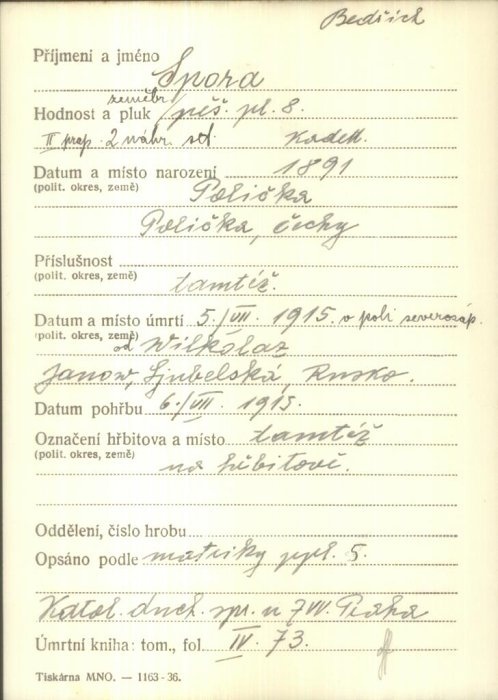 Bedřich
Příjmení a jméno Spora
zeměbr.
Hodnost a pluk pěš. pl. 8.
II prap. 2 náhr. set. Kadett.
Datum a místo narození 1891
(polit. okres, země) Polička
Polička, čechy
Příslušnost
(polit. okres, země) tamtéž.
Datum a místo úmrtí 5./VII. 1915. v poli severozáp.
(polit. okres, země) od Wilkolaz
Janow, Ljubelská, Rusko.
Datum pohřbu 6./VII. 1915.
Označení hřbitova a místo tamtéž
(polit. okres, země) na hřbitově.
Oddělení, číslo hrobu
Opsáno podle matriky ppl. 5.
Katol. duch. spr. u ZVV. Praha
Úmrtní kniha: tom., fol. IV. 73.
Tiskárna MNO. — 1163-36.